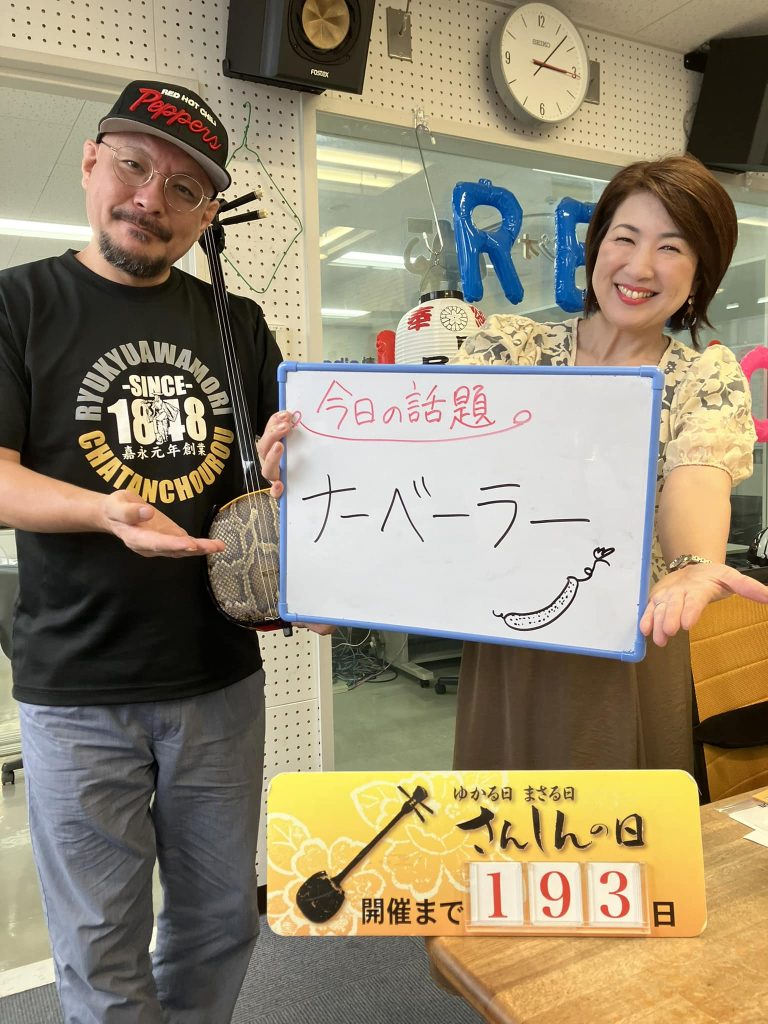 FOSTEX
SEIKO
RED HOT CHILI
Peppers
RE
RYUKYUAWAMORI
-SINCE-
1848
嘉永元年創業
CHATANCHOUROU
今日の話題
ナーベーラー
ゆかる日 まさる日
さんしんの日
開催まで193日